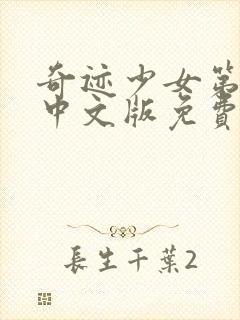 奇迹少女第
中文版免费
長生千葉2